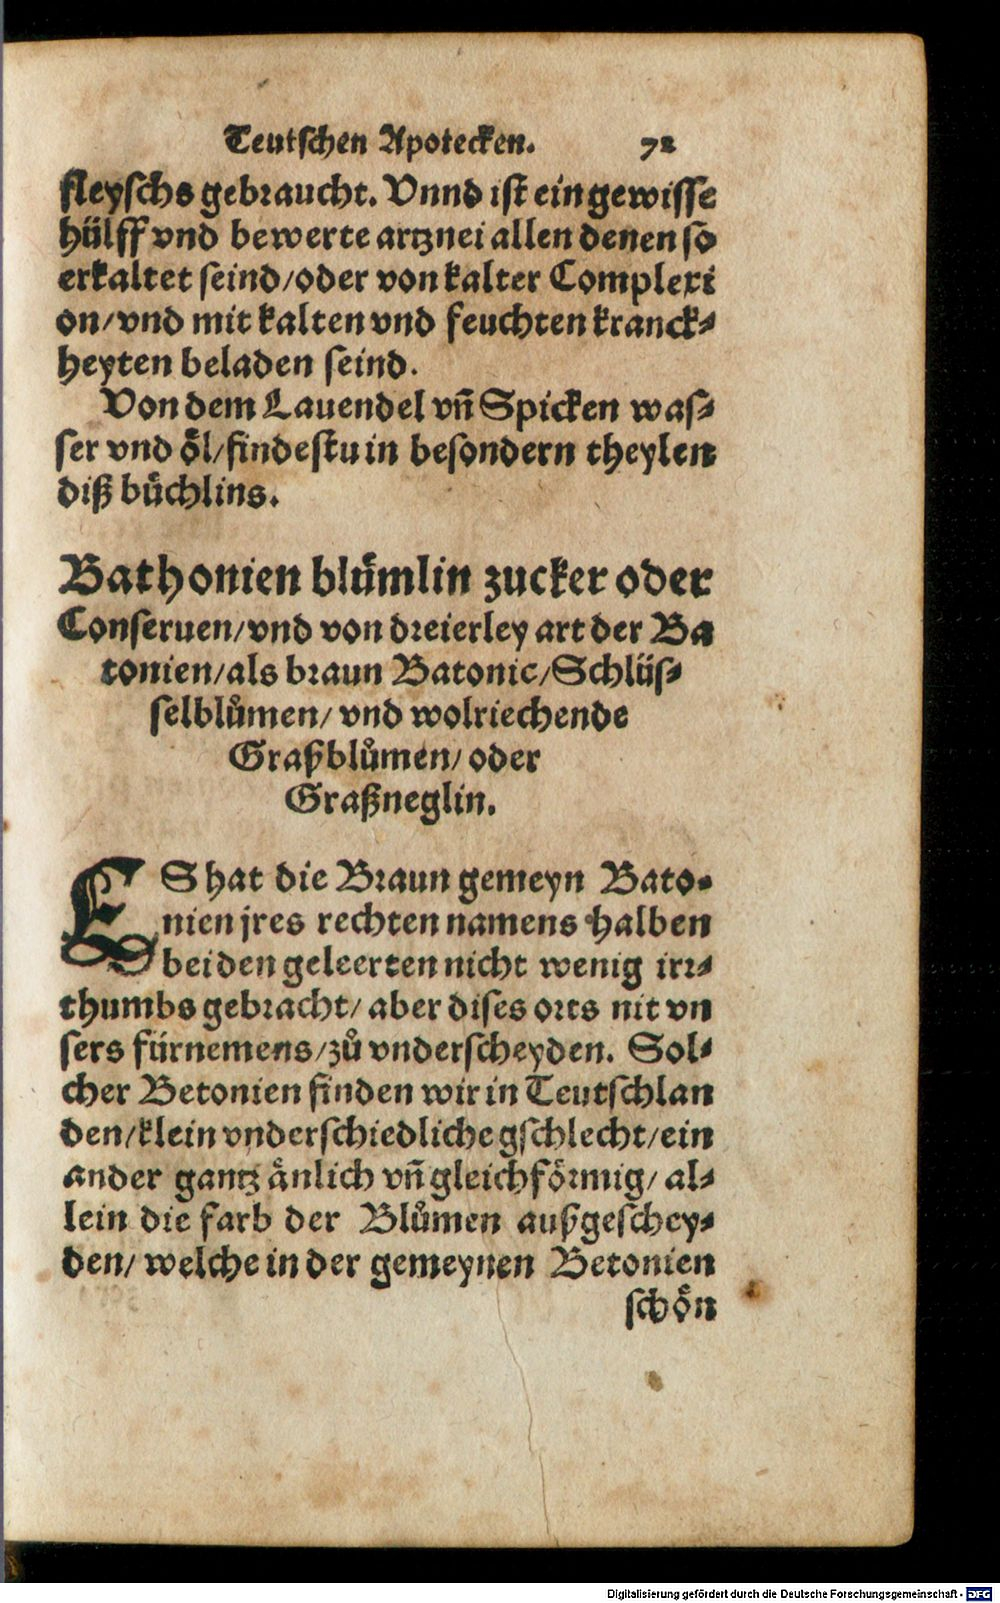 Teutschen Apotecken. 72
fleyschs gebraucht. Vnnd ist ein gewisse
hülff vnd bewerte artznei allen denen so
erkaltet seind/oder von kalter Complexi
on/vnd mit kalten vnd feuchten kranck⸗
heyten beladen seind.
Von dem Lauendel vn̄ Spicken was⸗
ser vnd öl/findestu in besondern theylen
diß büchlins.
Bathonien blümlin zucker oder
Conseruen/vnd von dreierley art der Ba
tonien/als braun Batonic/Schlüs⸗
selblůmen/ vnd wolriechende
Graßblůmen/ oder
Graßneglin.
ES hat die Braun gemeyn Bato⸗
nien jres rechten namens halben
bei den geleerten nicht wenig irr⸗
thumbs gebracht/ aber dises orts nit vn
sers fürnemens/zů vnderscheyden. Sol⸗
cher Betonien finden wir in Teutschlan
den/klein vnderschiedliche gschlecht/ein
ander gantz änlich vn̄ gleichförmig/ al⸗
lein die farb der Blůmen außgeschey⸗
den/ welche in der gemeynen Betonien
schön
Digitalisierung gefördert durch die Deutsche Forschungsgemeinschaft - DFG